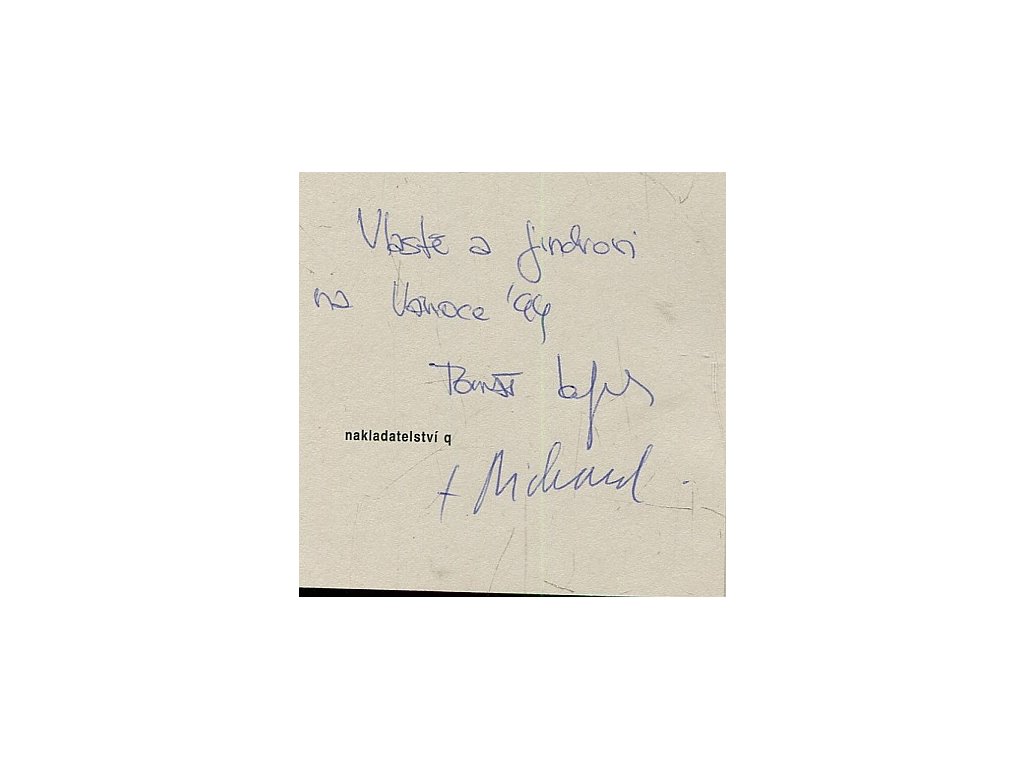 Vlastě a Jindrovi
na Vánoce '94
Tomáš
nakladatelství q
+ Richard.